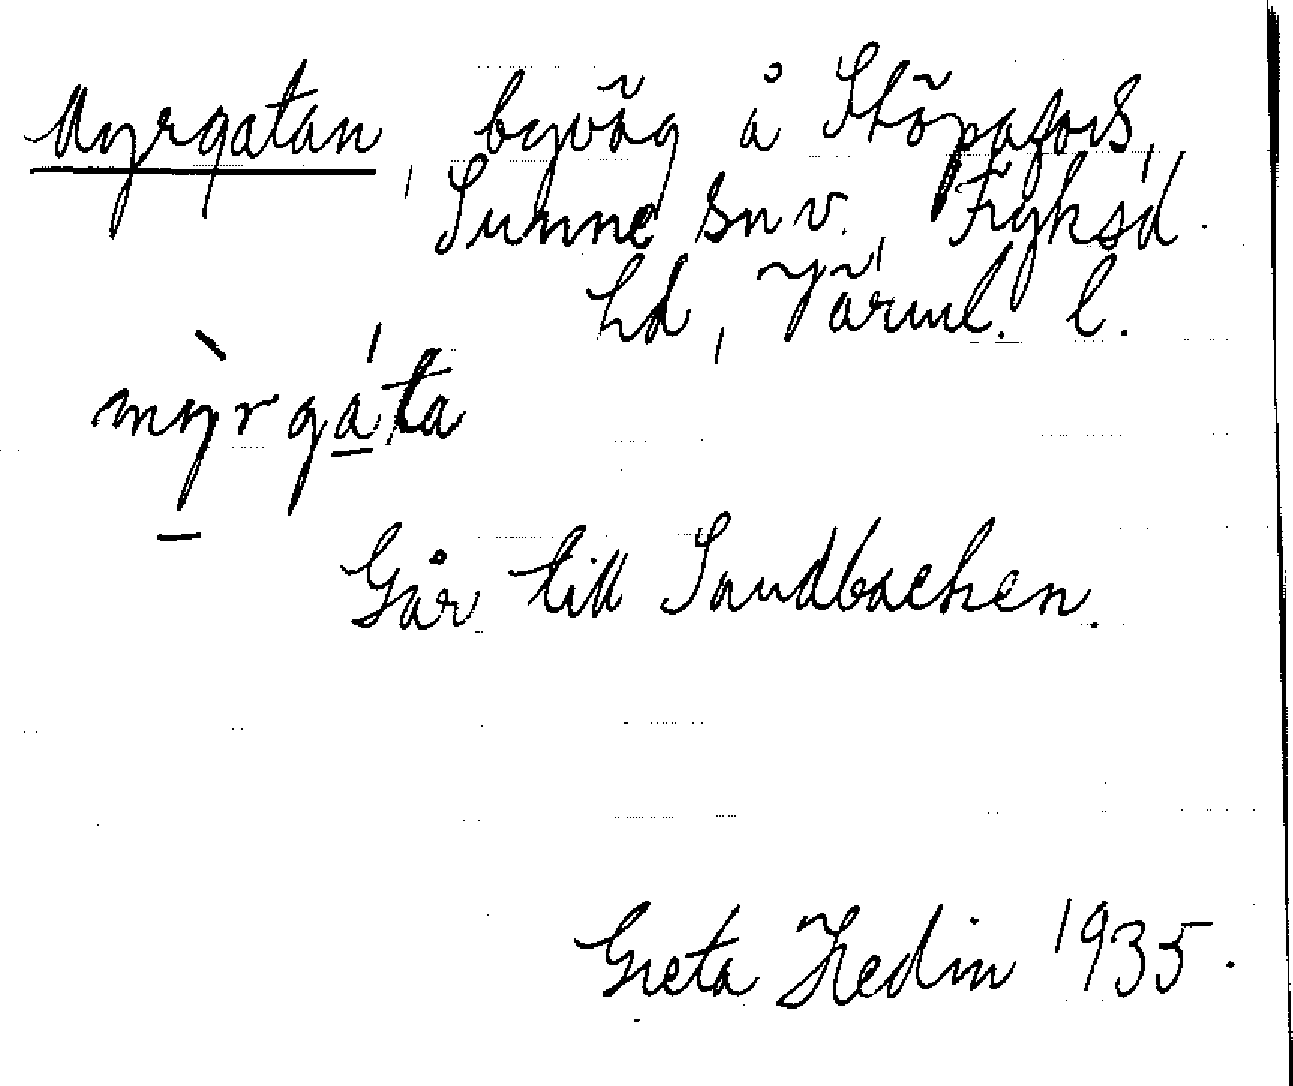 Myrgatan, byväg å Stöpafors,
Sunne snv., Fryksd.
hd, Värml. l.
mỳrgáta
Går till Sandbacken.
Greta Hedin 1935.